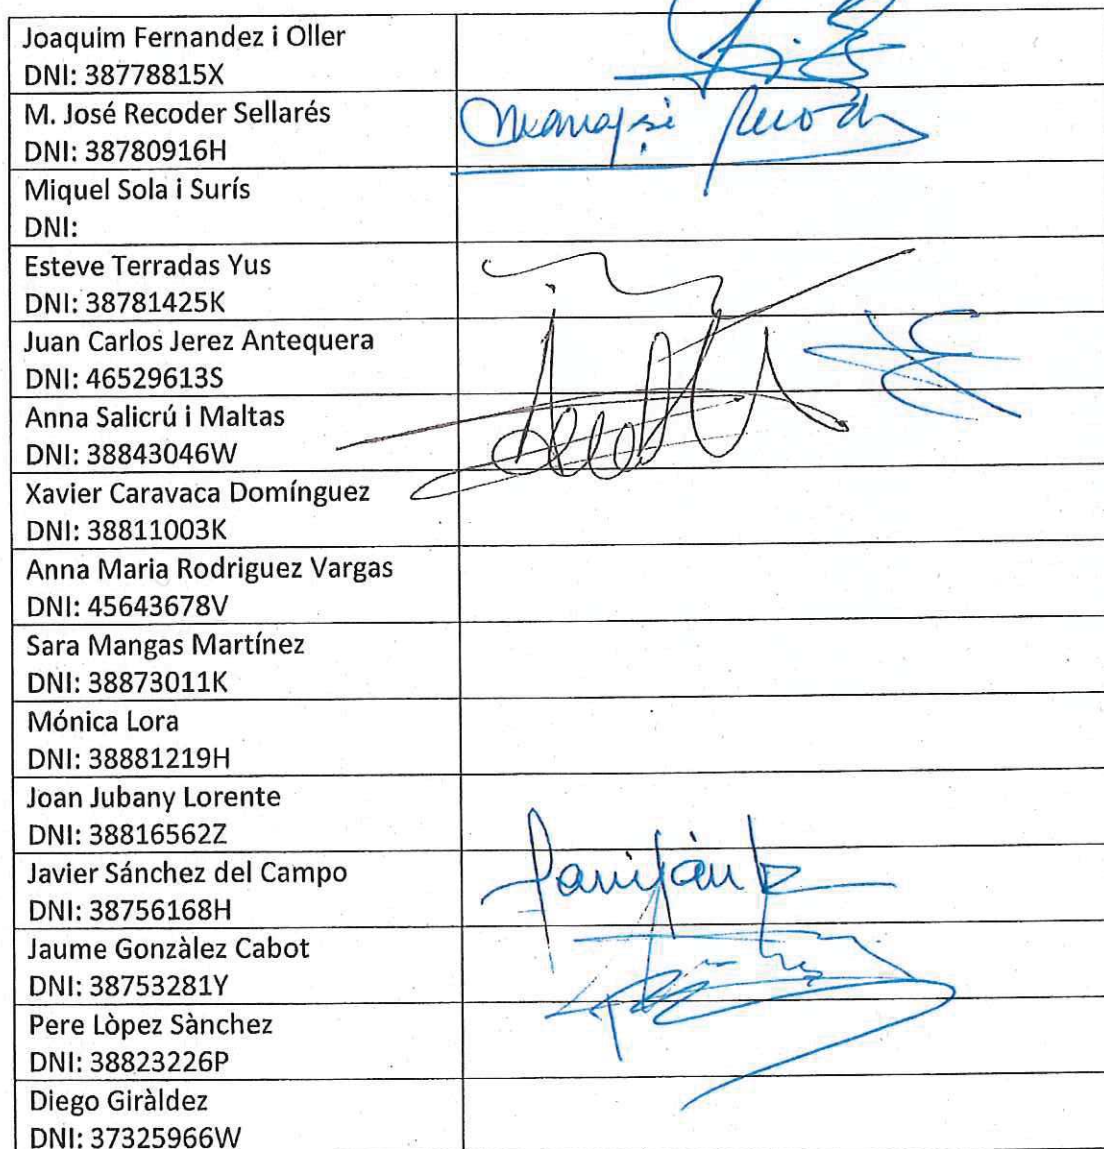 Joaquim Fernandez i Oller
DNI: 38778815X
M. José Recoder Sellarés
DNI: 38780916H
Miquel Sola i Surís
DNI:
Esteve Terradas Yus
DNI: 38781425K
Juan Carlos Jerez Antequera
DNI: 46529613S
Anna Salicrú i Maltas
DNI: 38843046W
Xavier Caravaca Domínguez
DNI: 38811003K
Anna Maria Rodriguez Vargas
DNI: 45643678V
Sara Mangas Martínez
DNI: 38873011K
Mónica Lora
DNI: 38881219H
Joan Jubany Lorente
DNI: 38816562Z
Javier Sánchez del Campo
DNI: 38756168H
Jaume Gonzàlez Cabot
DNI: 38753281Y
Pere Lòpez Sànchez
DNI: 38823226P
Diego Giràldez
DNI: 37325966W